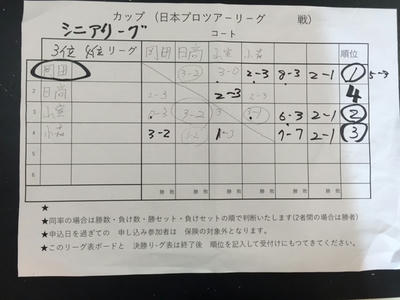 カップ（日本プロツアーリーグ　戦）
シニアリーグ
コート
3位 4位 リーグ 岡田 日高 小室 小 順位
1 岡田 3-2 3-0 2-3 8-3 2-1 1 5-3
2 日高 2-3 2-3 2-3 4
3 小室 0-3 3-2 6-3 2-1 2
4 小 3-2 1-3 7-7 2-1 3
5
6
勝 敗 勝 敗 勝 敗 勝 敗 勝 敗 勝 敗
★
★同率の場合は勝数・負け数・勝セット・負けセットの順で判断いたします(2者間の場合は勝者)
★申込日を過ぎての　申し込み参加者は　保険の対象外となります。
★このリーグ表ボードと　決勝リーグ表は終了後　順位を記入して受付けにもってきてください。